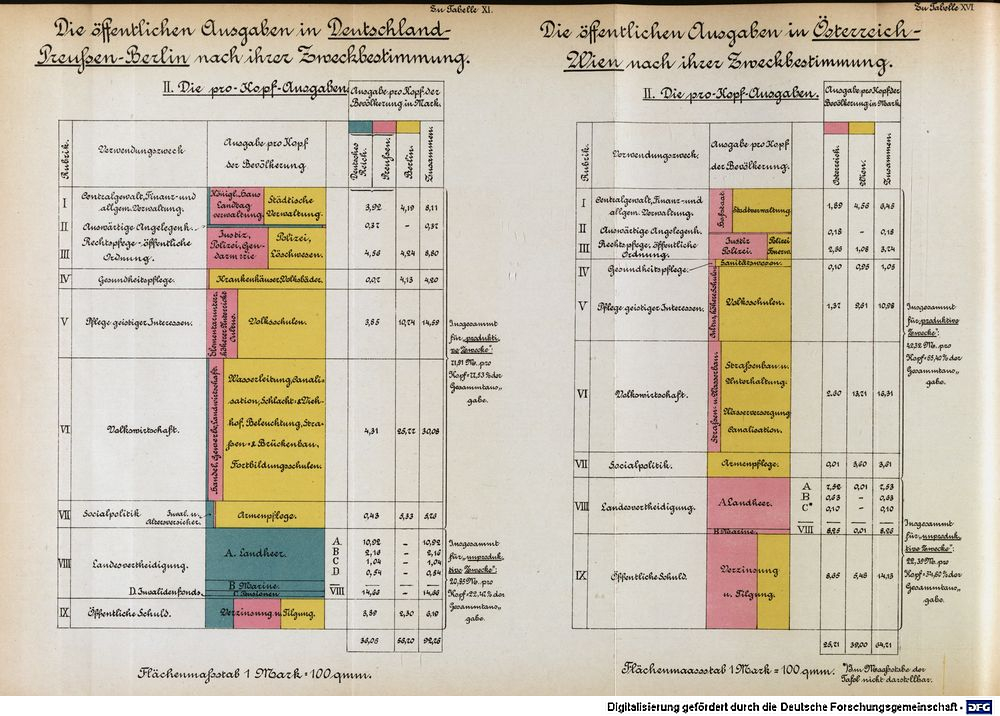 Zu Tabelle XI.
Die öffentlichen Ausgaben in Deutschland-
Preußen-Berlin nach ihrer Zweckbestimmung.
II. Die pro-Kopf-Ausgaben
Ausgabe pro Kopf der
Bevölkerung in Mark.
Rubrik.
Verwendungszweck
Ausgabe pro Kopf
der Bevölkerung
Deutsches
Reich.
Preußen.
Berlin.
Zusammen.
I
Centralgewalt, Finanz- und
allgem. Verwaltung.
Königl. Haus
Landtag
verwaltung.
Städtische
Verwaltung.
3,92 4,19 8,11
II
Auswärtige Angelegenh.
–
III
Rechtspflege - öffentliche
Ordnung.
Justiz,
Polizei, Gen-
darmerie
Polizei,
Löschwesen.
4,56 4,24 8,80
IV
Gesundheitspflege.
Krankenhäuser, Volksbäder.
4,13 4,20
V
Pflege geistiger Interessen.
Volksschulen.
3,85 10,74 14,59
VI
Volkswirtschaft.
Handel, Gewerbe, Landwirtschaft.
Wasserleitung, Canali-
sation, Schlacht- & Vieh-
hof, Beleuchtung, Stra-
ßen- & Brückenbau,
Fortbildungsschulen.
4,31 30,08
VII
Socialpolitik
Inval.- u.
Altersversicher.
Armenpflege.
0,43
VIII
Landesvertheidigung.
A. Landheer.
B. Marine.
C. Pensionen
D. Invalidenfonds
A 10,92 – 10,92
B 2,16 – 2,16
C 1,04 – 1,04
D 0,54 – 0,54
VIII 14,66 – 14,66
IX
Öffentliche Schuld.
Verzinsung u. Tilgung.
2,30
36,05 92,25
Insgesammt
für „produkti-
ve Zwecke“:
71,91 M. pro
Kopf = 77,53 % der
Gesammtaus-
gabe.
Insgesammt
für „unproduk-
tive Zwecke“:
20,85 M. pro
Kopf = 22,47 % der
Gesammtaus-
gabe.
Flächenmaßstab 1 Mark = 100 qmm.
Zu Tabelle XVI.
Die öffentlichen Ausgaben in Österreich-
Wien nach ihrer Zweckbestimmung.
II. Die pro-Kopf-Ausgaben.
Ausgabe pro Kopf der
Bevölkerung in Mark.
Rubrik.
Verwendungszweck.
Ausgabe pro Kopf
der Bevölkerung.
Österreich.
Wien.
Zusammen.
I
Centralgewalt, Finanz- und
allgem. Verwaltung.
Hofstaat.
Stadtverwaltung.
1,89 4,56 6,45
II
Auswärtige Angelegenh.
0,18 – 0,18
III
Rechtspflege, öffentliche
Ordnung.
Justiz
Polizei.
Polizei
1,08 3,74
IV
Gesundheitspflege.
Sanitätswesen.
0,10 0,95 1,05
V
Pflege geistiger Interessen.
Volksschulen.
1,37 9,61 10,98
VI
Volkswirtschaft.
Straßen- u. Wasserbau.
Straßenbau u.
Unterhaltung.
Wasserversorgung
Canalisation.
2,60 13,71 16,31
VII
Socialpolitik.
Armenpflege.
0,01 3,60 3,61
VIII
Landesvertheidigung.
A. Landheer.
B. Marine.
A 7,52 0,01 7,53
B 0,63 – 0,63
C* 0,10 – 0,10
VIII 8,25 0,01 8,26
IX
Öffentliche Schuld.
Verzinsung
u. Tilgung.
8,65 5,48 14,13
25,71 39,00 64,71
Insgesammt
für „produktive
Zwecke“:
42,32 M. pro
Kopf = 65,40 % der
Gesammtaus-
gabe.
Insgesammt
für „unproduk-
tive Zwecke“:
22,39 M. pro
Kopf = 34,60 % der
Gesammtaus-
gabe.
Flächenmaassstab 1 Mark = 100 qmm.
*) Im Maaßstabe der
Tafel nicht darstellbar.
Digitalisierung gefördert durch die Deutsche Forschungsgemeinschaft - DFG